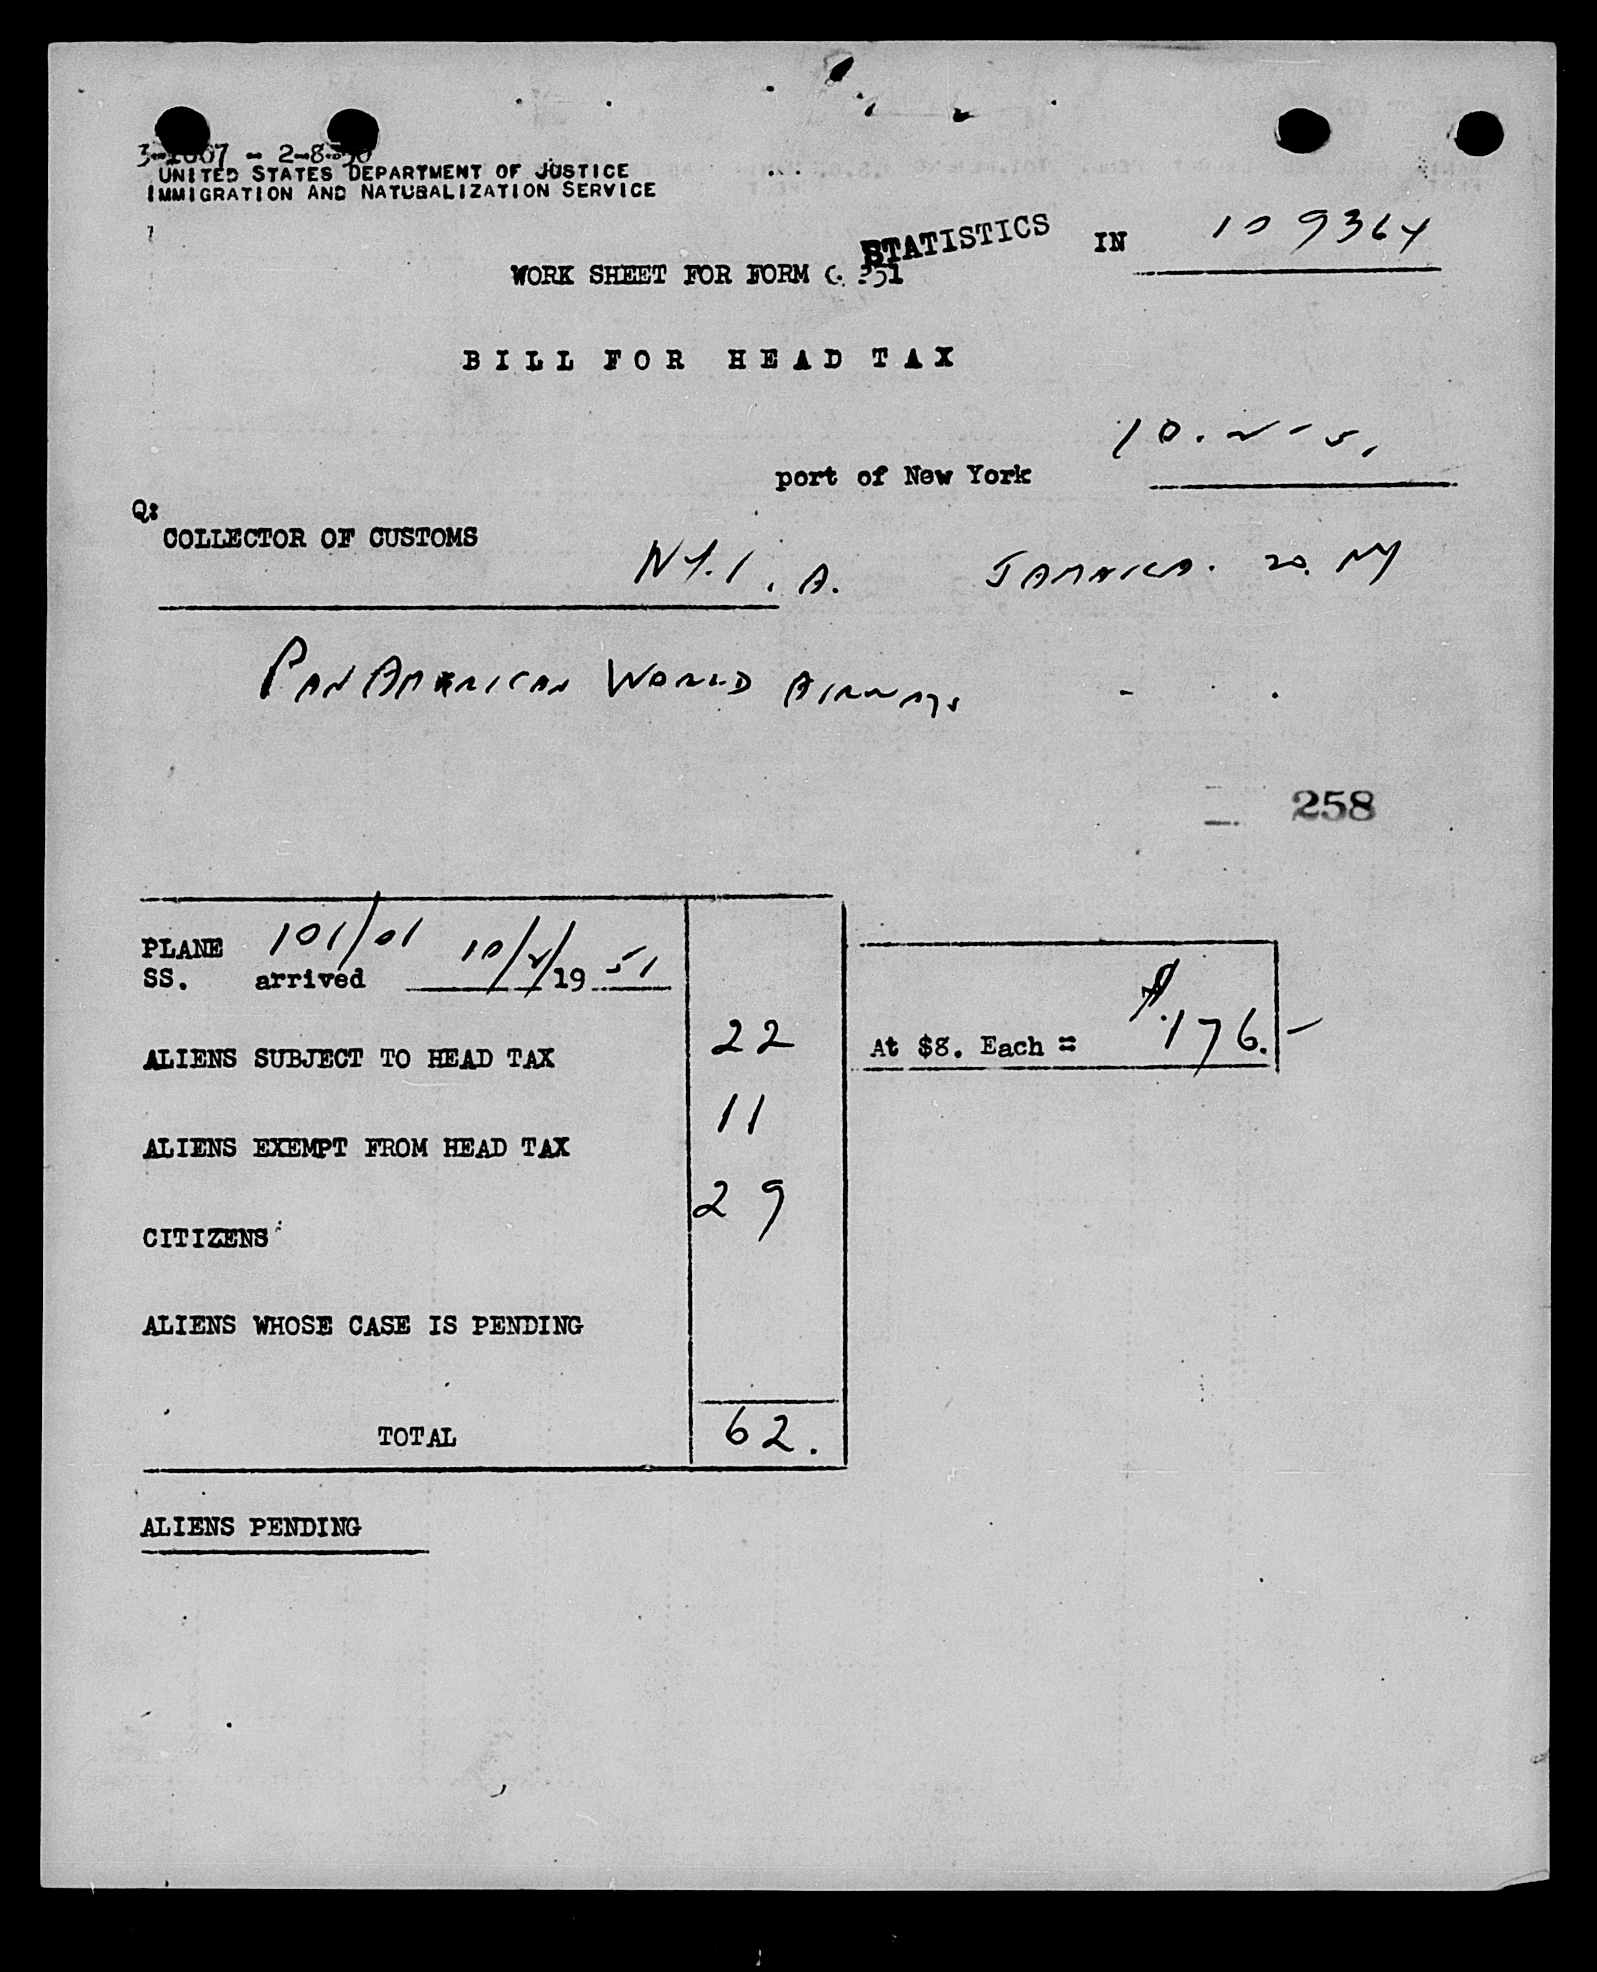 UNITED STATES DEPARTMENT OF JUSTICE
IMMIGRATION AND NATURALIZATION SERVICE
STATISTICS
IN 109364
WORK SHEET FOR FORM
BILL FOR HEAD TAX
port of New York
Q:
COLLECTOR OF CUSTOMS
N.Y.I.A. JAMAICA. 20. NY
PAN AMERICAN WORLD AIRWAYS
258
PLANE 101/01 10/2/19 51
SS. arrived
ALIENS SUBJECT TO HEAD TAX 22 At $8. Each = $176.-
ALIENS EXEMPT FROM HEAD TAX 11
CITIZENS 29
ALIENS WHOSE CASE IS PENDING
TOTAL 62.
ALIENS PENDING